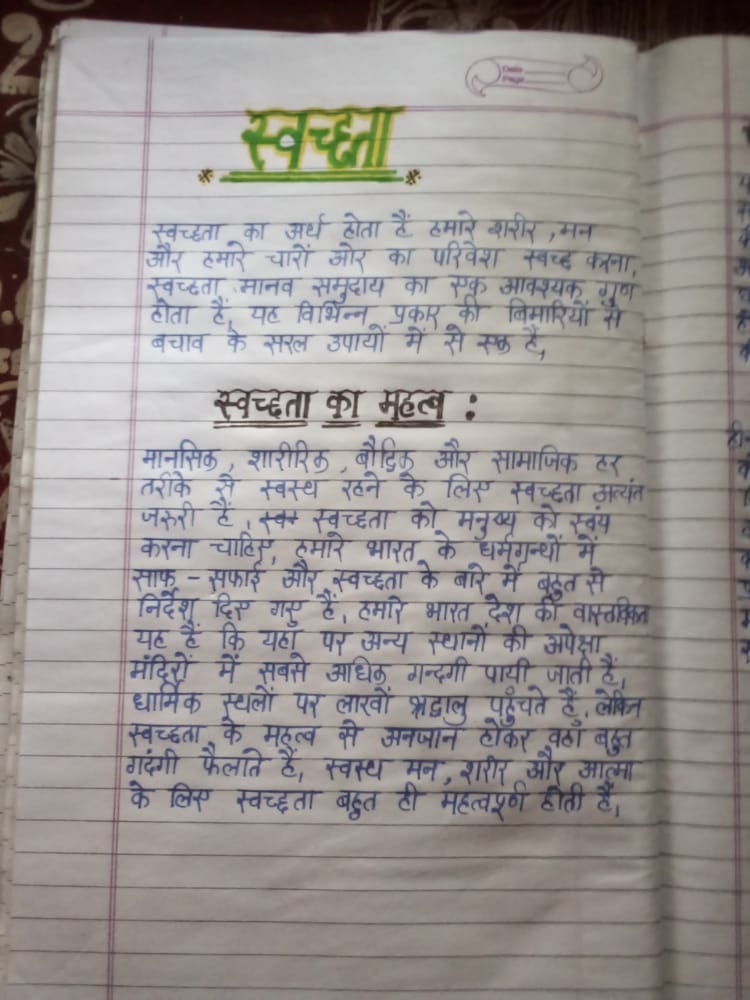 Date
Page
स्वच्छता
स्वच्छता का अर्थ होता हैं हमारे शरीर, मन
और हमारे चारों ओर का परिवेश स्वच्छ करना,
स्वच्छता मानव समुदाय का एक आवश्यक गुण
होता हैं, यह विभिन्न प्रकार की बिमारियों से
बचाव के सरल उपायों में से एक हैं,
स्वच्छता का महत्व :
मानसिक, शारीरिक, बौद्विक और सामाजिक हर
तरीके से स्वस्थ रहने के लिए स्वच्छता अत्यंत
जरुरी हैं, स्वच्छता को मनुष्य को स्वयं
करना चाहिए, हमारे भारत के धर्मग्रन्थों में
साफ - सफाई और स्वच्छता के बारे में बहुत से
निर्देश दिए गए हैं, हमारे भारत देश की
यह हैं कि यहाँ पर अन्य स्थानों की अपेक्षा
मंदिरों में सबसे अधिक गन्दगी पायी जाती हैं,
धार्मिक स्थलों पर लाखों श्रद्धालु पहुँचते हैं, लेकिन
स्वच्छता के महत्व से अनजान होकर वहा बहुत
गदंगी फैलाते हैं, स्वस्थ मन, शरीर और आत्मा
के लिए स्वच्छता बहुत ही महत्वपूर्ण होती हैं,